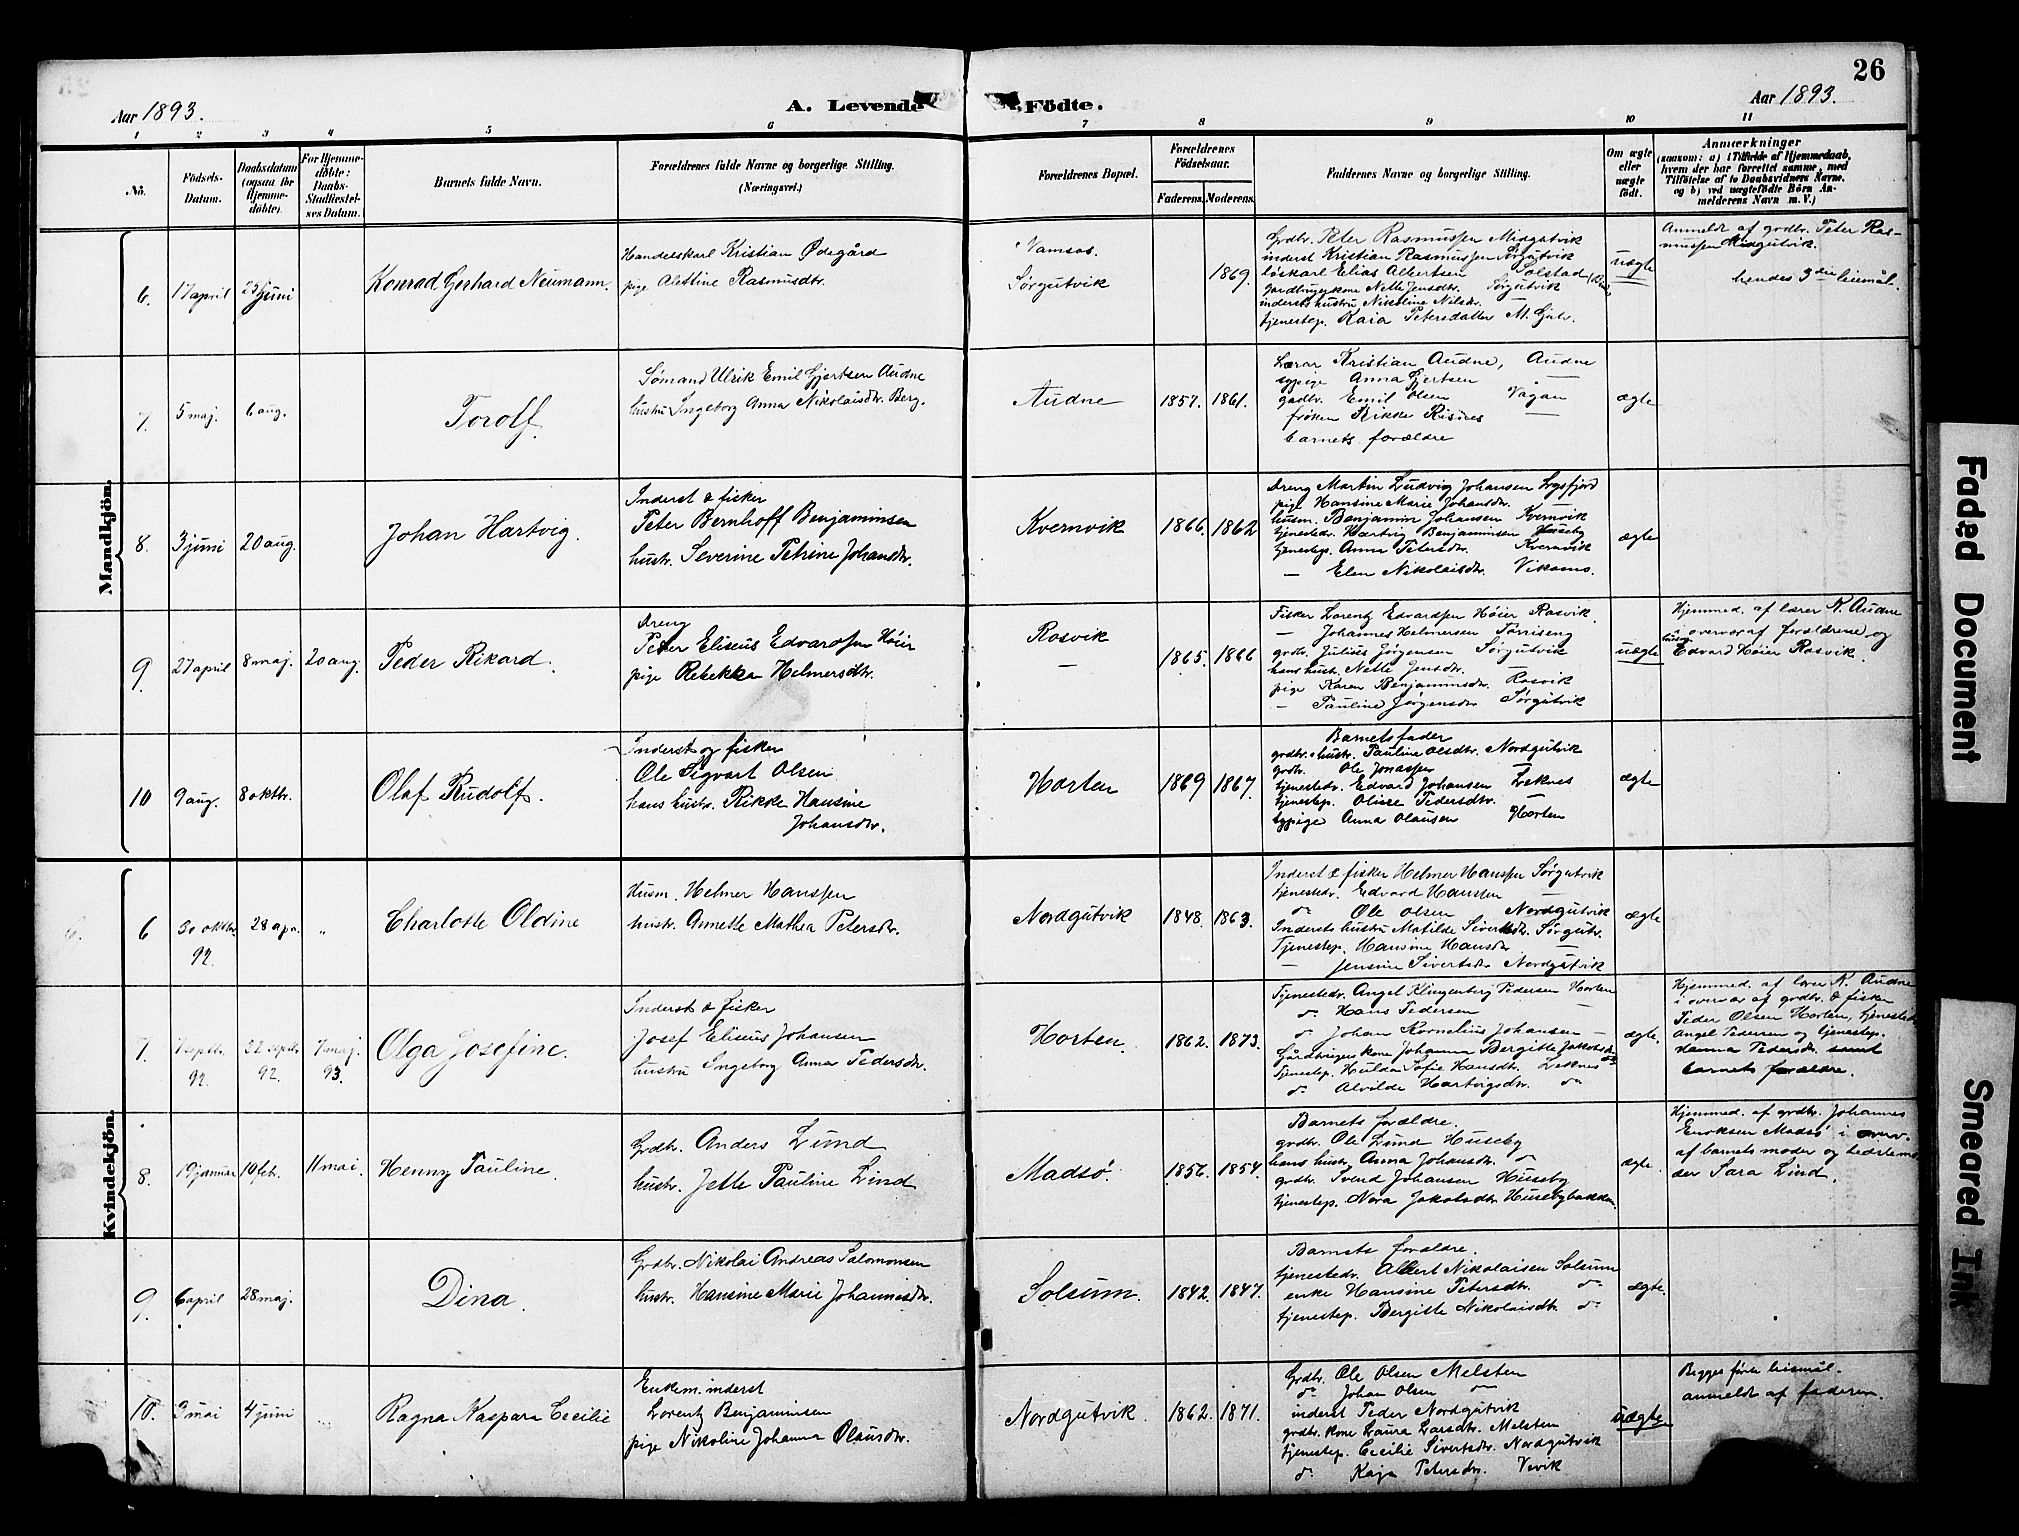 26
Aar 1893.
A. Levende Födte.
Aar 1893.
1 2 3 4 5 6 7 8 9 10 11
No.
Födsels-
Datum.
Daabsdatum
(ogsaa for
Hjemme-
döbte).
For Hjemme-
döbte:
Daabs-
Stadfæstel-
ses Datum.
Barnets fulde Navn.
Forældrenes fulde Navne og borgerlige Stilling.
(Næringsvei.)
Forældrenes Bopæl.
Forældrenes
Födselsaar.
Faderens. Moderens.
Faddernes Navne og borgerlige Stilling.
Om ægte
eller
uægte
födt.
Anmærkninger
(saasom: a) i Tilfælde af Hjemmedaab,
hvem der har forrettet samme, med
Tilföielse af to Daabsvidners Navne,
og b) ved uægtefödte Börn An-
melderens Navn m. V.)
Mandkjön.
6. 17 april 25 juni Konrad Gerhard Neumann.
Handelskarl Kristian Ødegård
pige Alettine Rasmusdtr.
Namsos.
Sørgutvik
1869.
Grdbr. Peter Rasmussen Midgutvik
inderst Kristian Rasmussen Sørgutvik
løskarl Elias Albertsen Solstad
gardbrugerkone Nette Jensdtr. Sørgutvik
inderstshustru Nikoline Nilsdr.
tjenestep. Kaia Petersdatter
uægte
Anmeldt af grdbr. Peter Ras-
mussen Midgutvik.
hendes 3die leiemål.
7. 5 maj. 6 aug. Torolf.
Sømand Ulrik Emil Gjertsen Audne
hustru Ingeborg Anna Nikolaisdtr. Berg.
Audne 1857. 1861.
Lærer Kristian Audne, Audne
sypige Anna Gjertsen —
gadbr. Emil Olsen Vågan
frøken Rikke Risnes —
barnets forældre
ægte
8. 3 juni 20 aug. Johan Hartvig.
Inderst & fisker
Peter Bernhoff Benjaminsen
hustr. Severine Petrine Johansdtr.
Kvernvik 1866. 1862
Dreng Martin Ludvig Johansen Sogsfjord
pige Hansine Marie Johansdtr. —
husm. Benjamin Johansen Kvernvik
tjenestedr. Hartvig Benjaminsen Huseby
tjenestep. Anna Petersdtr. Kvernvik
— Elen Nikolaisdtr. Vikams.
ægte
9. 27 april 8 maj. 20 aug. Peder Rikard.
Dreng
Peter Eliseus Edvardsen Høier
pige Rebekka Helmersdtr.
Rosvik
—
1865. 1866
Fisker Lorentz Edvardsen Høier Rosvik.
— Johannes Helmersen Torriseng
grdbr. Julius Jørgensen Sørgutvik
hans hustr. Nette Jensdtr. —
pige Karen Benjaminsdtr. Rosvik
— Pauline Jørgensdtr Sørgutvik
uægte
Hjemmed. af lærer K. Audne
i overvær af forældrene og
Edvard Høier Rosvik.
10 9 aug. 8 oktbr. Olaf Rudolf.
Inderst og fisker
Ole Sigvart Olsen
hans hustr. Rikke Hansine
Johansdtr.
Horten 1869 1867.
Barnets fader
grdbr. hustr. Pauline Olsdtr. Nordgutvik
grdbr. Ole Jonassen —
tjenestedr. Edvard Johansen Leknes
tjenestep. Olise Pedersdtr. —
sypige Anna Olausen Horten
ægte
Kvindekjön.
6 30 oktbr. 92. 28 apr. „ Charlotte Oldine
Husm. Helmer Hanssen
hustr. Annette Mathea Petersdtr.
Nordgutvik 1848. 1863.
Inderst & fisker Helmer Hanssen Sørgutvik
tjenestedr. Edvard Hanssen —
do Ole Olsen Nordgutvik
Indersts hustru Matilde Sivertsdtr. Sørgutv.
Tjenestep. Hansine Hansdtr —
— Jensine Sivertsdtr Nordgutvik
ægte
7. 7 septbr. 92. 22 septbr 92. 7 maj. 93. Olga Josefine.
Inderst & fisker
Josef Eliseus Johansen
hustru Ingeborg Anna Pedersdtr.
Horten. 1862. 1873.
Tjenestedr. Angel Klingenberg Pedersen Horten
do Hans Pedersen —
do Johan Kornelius Johansen —
Gårdbrugerkone Johanna Bergitte Jakobsdtr
Tjenestep. Hulda Sofie Hansdtr. Leknes
do Alvilde Hartvigsdtr. do
ægte.
Hjemmed. af lærer K. Audne
i overvær af grdbr. & fisker
Peder Olsen Horten, tjenestedr.
Angel Pedersen og tjenestep.
Hanna Pedersdtr. samt
barnets forældre.
8. 19 januar 10 feb. 11 mai. Henny Pauline.
Grdbr. Anders Lund
hustr. Jette Pauline Lind
Madsø. 1856. 1854.
Barnets forældre.
grdbr. Ole Lund Huseby
hans hustr. Anna Johansdtr. do
grdbr. Svend Johansen Huseby
tjenestep. Nora Jakobsdtr Husebybakken.
ægte.
Hjemmed. af grdbr. Johannes
Eriksen Madsø i overv.
af barnets moder og bedstemo-
der Sara Lind.
9. 6 april 28 maj. Dina.
Grdbr. Nikolai Andreas Salomonsen
hustr. Hansine Marie Johannesdtr.
Solsum. 1842. 1847.
Barnets forældre.
tjenestedr. Albert Nikolaisen Solsum
enke Hansine Petersdtr. do
tjenestep. Bergitte Nikolaisdtr. do
ægte.
10. 3 mai 4 juni Ragna Kaspara Cecilie
Enkem. inderst
Lorentz Benjaminsen
pige Nikoline Johanna Olausdtr.
Nordgutvik. 1862. 1871.
Grdbr. Ole Olsen Melsten
do Johan Olsen do
inderst Peder Nordgutvik
grdbr. kone Laura Larsdtr. Melsten
tjenestep. Cecilie Sivertsdtr. Nordgutvik
do Kaja Petersdtr. Vevik
uægte
Begges første leiemål.
anmeldt af faderen.
Faded Document
Smeared Ink